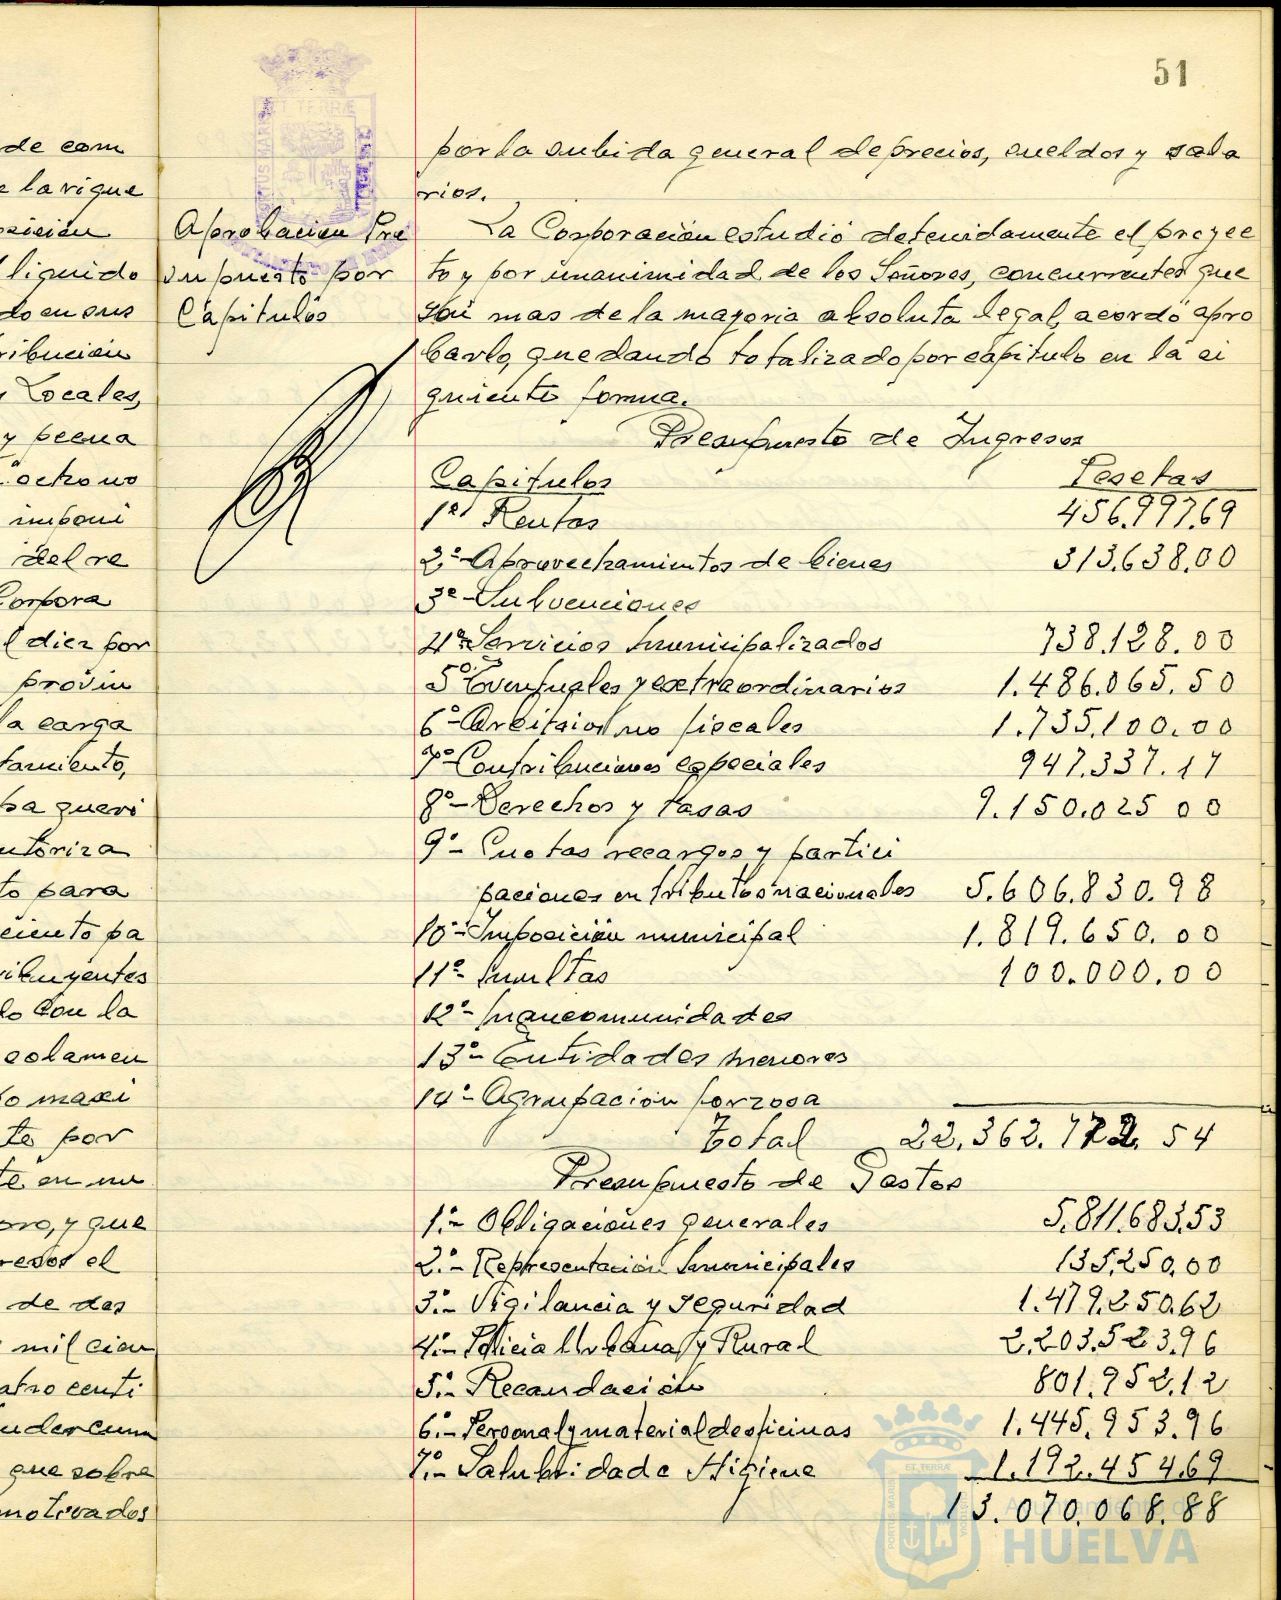 51
de com
e la vigue
osición
l liquido
do en sus
ribución
s Locales,
y peena
ocho no
imponi
del re
Corpora
l diez por
provin
la carga
tamiento,
utoriza
to para
ciento pa
ribuyentes
do con la
solamen
o maxi
te por
te en nu
orro, y que
resos el
de dos
mil cien
atro centi
que sobre
motivados
Aprobación Pre
supuesto por
Capitulos
por la subida general de precios, sueldos y sala
rios.
La Corporación estudió detenidamente el proyec
to y por unanimidad de los Señores, concurrentes que
son mas de la mayoria absoluta legal, acordó apro
barlo, quedando totalizado por capitulo en la si
guiente forma.
Presupuesto de Ingresos
Capitulos Pesetas
1º Rentas 456.997.69
2º- Aprovechamientos de bienes 313.638.00
3º- Subvenciones
4º- Servicios municipalizados 738.128.00
5º Eventuales y extraordinarios 1.486.065.50
6º- Arbitrios no fiscales 1.735.100.00
7º- Contribuciones especiales 947.337.17
8º- Derechos y tasas 9.150.025 00
9º- Cuotas recargos y partici
paciones en tributos nacionales 5.606.830.98
10º- Imposición municipal 1.819.650.00
11º- Multas 100.000.00
12º- Mancomunidades
13º- Entidades menores
14º- Agrupación forzosa
Total 22.362.772.54
Presupuesto de Gastos
1º.- Obligaciones generales 5.811.683.53
2º.- Representación Municipales 135.250.00
3º.- Vigilancia y seguridad 1.479.250.62
4º.- Policia Urbana y Rural 2.203.523.96
5º.- Recaudación 801.952.12
6º.- Personal y material de oficinas 1.445.953.96
7º.- Salubridad e Higiene 1.192.454.69
13.070.068.88
Ayuntamiento de
HUELVA